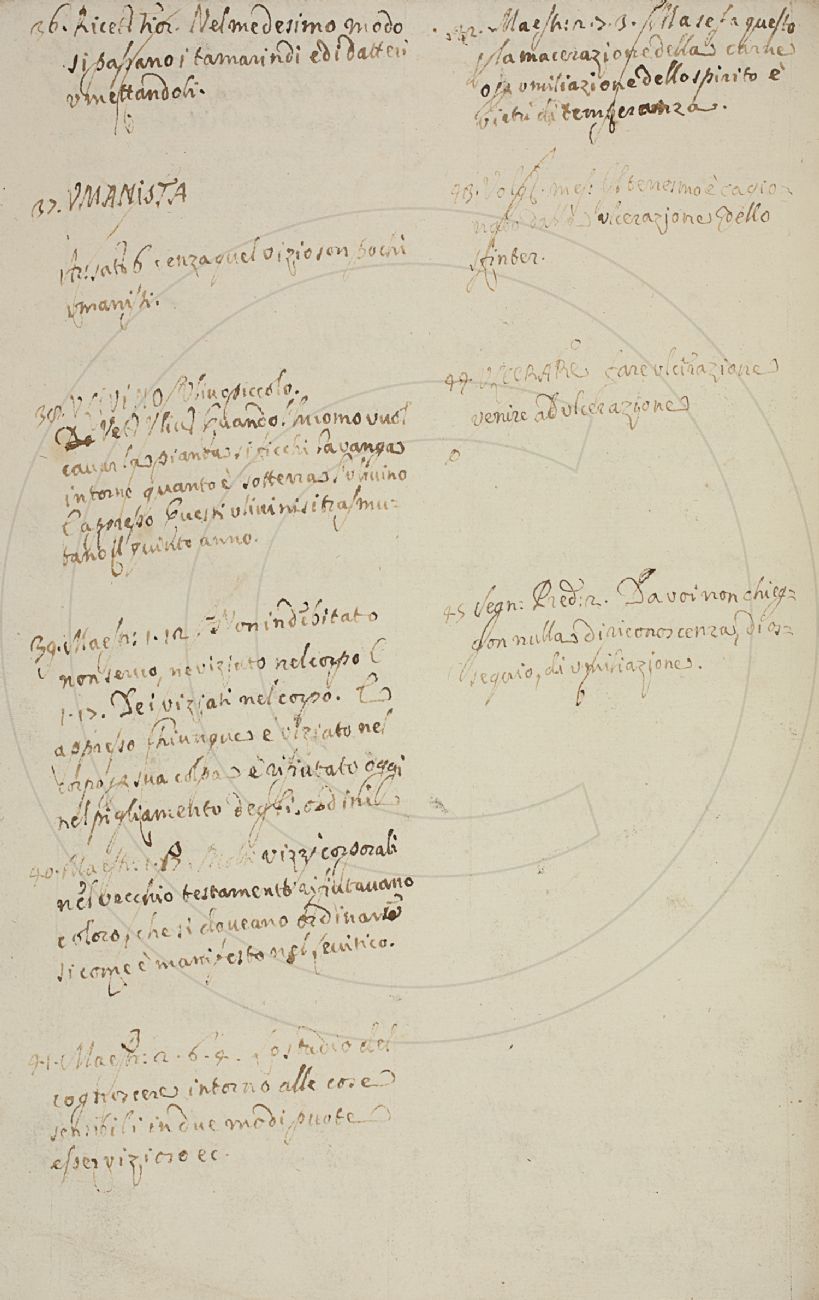 36. Ricett. Fior. Nel medesimo modo
si passano i tamarindi ed i datteri
umettandoli.
37. VMANISTA
Ar: sat: 6 cenza quel vizio son pochi
umanisti.
38. VLIVINO Vlivo piccolo.
Vett. Vliv. Quando l'huomo vuol
cavar la pianta, si ficchi la vanga
intorno quanto è sotterra l'ulivino
E appresso Questi ulivini si trasmu-
tano il quinto anno.
39. Maestr: 1. 12. Non indebitato
non servo, ne viziato nel corpo E
1. 17. De i viziati nel corpo. E
appresso Chiunque è viziato nel
corpo per sua colpa è rifiutato oggi
nel pigliamento degli ordini
40. Maestr: 1. 17. Molti vizzi corporali
nel vecchio testamento rifiutavano
coloro, che si doveano ordinare
si come è manifesto nel Levitico.
41. Maestr: 2. 6. 4. Lo studio del
cognoscere intorno alle cose
sensibili in due modi puote
esser vizioso ec.
42. Maestr: 2. 7. 3. Ma se fa questo
per la macerazione della carne
o per umiliazione dello spirito è
virtù di temperanza.
43. Volg. mes: Il tenesmo è cagio-
nato dalla ulcerazione dello
sfinter.
44. VLCERARE fare ulcerazione
venire ad ulcerazione
45 Segn: Pred: 2. Da voi non chieg-
gon nulla di riconoscenza, di os-
sequio, di umiliazione.